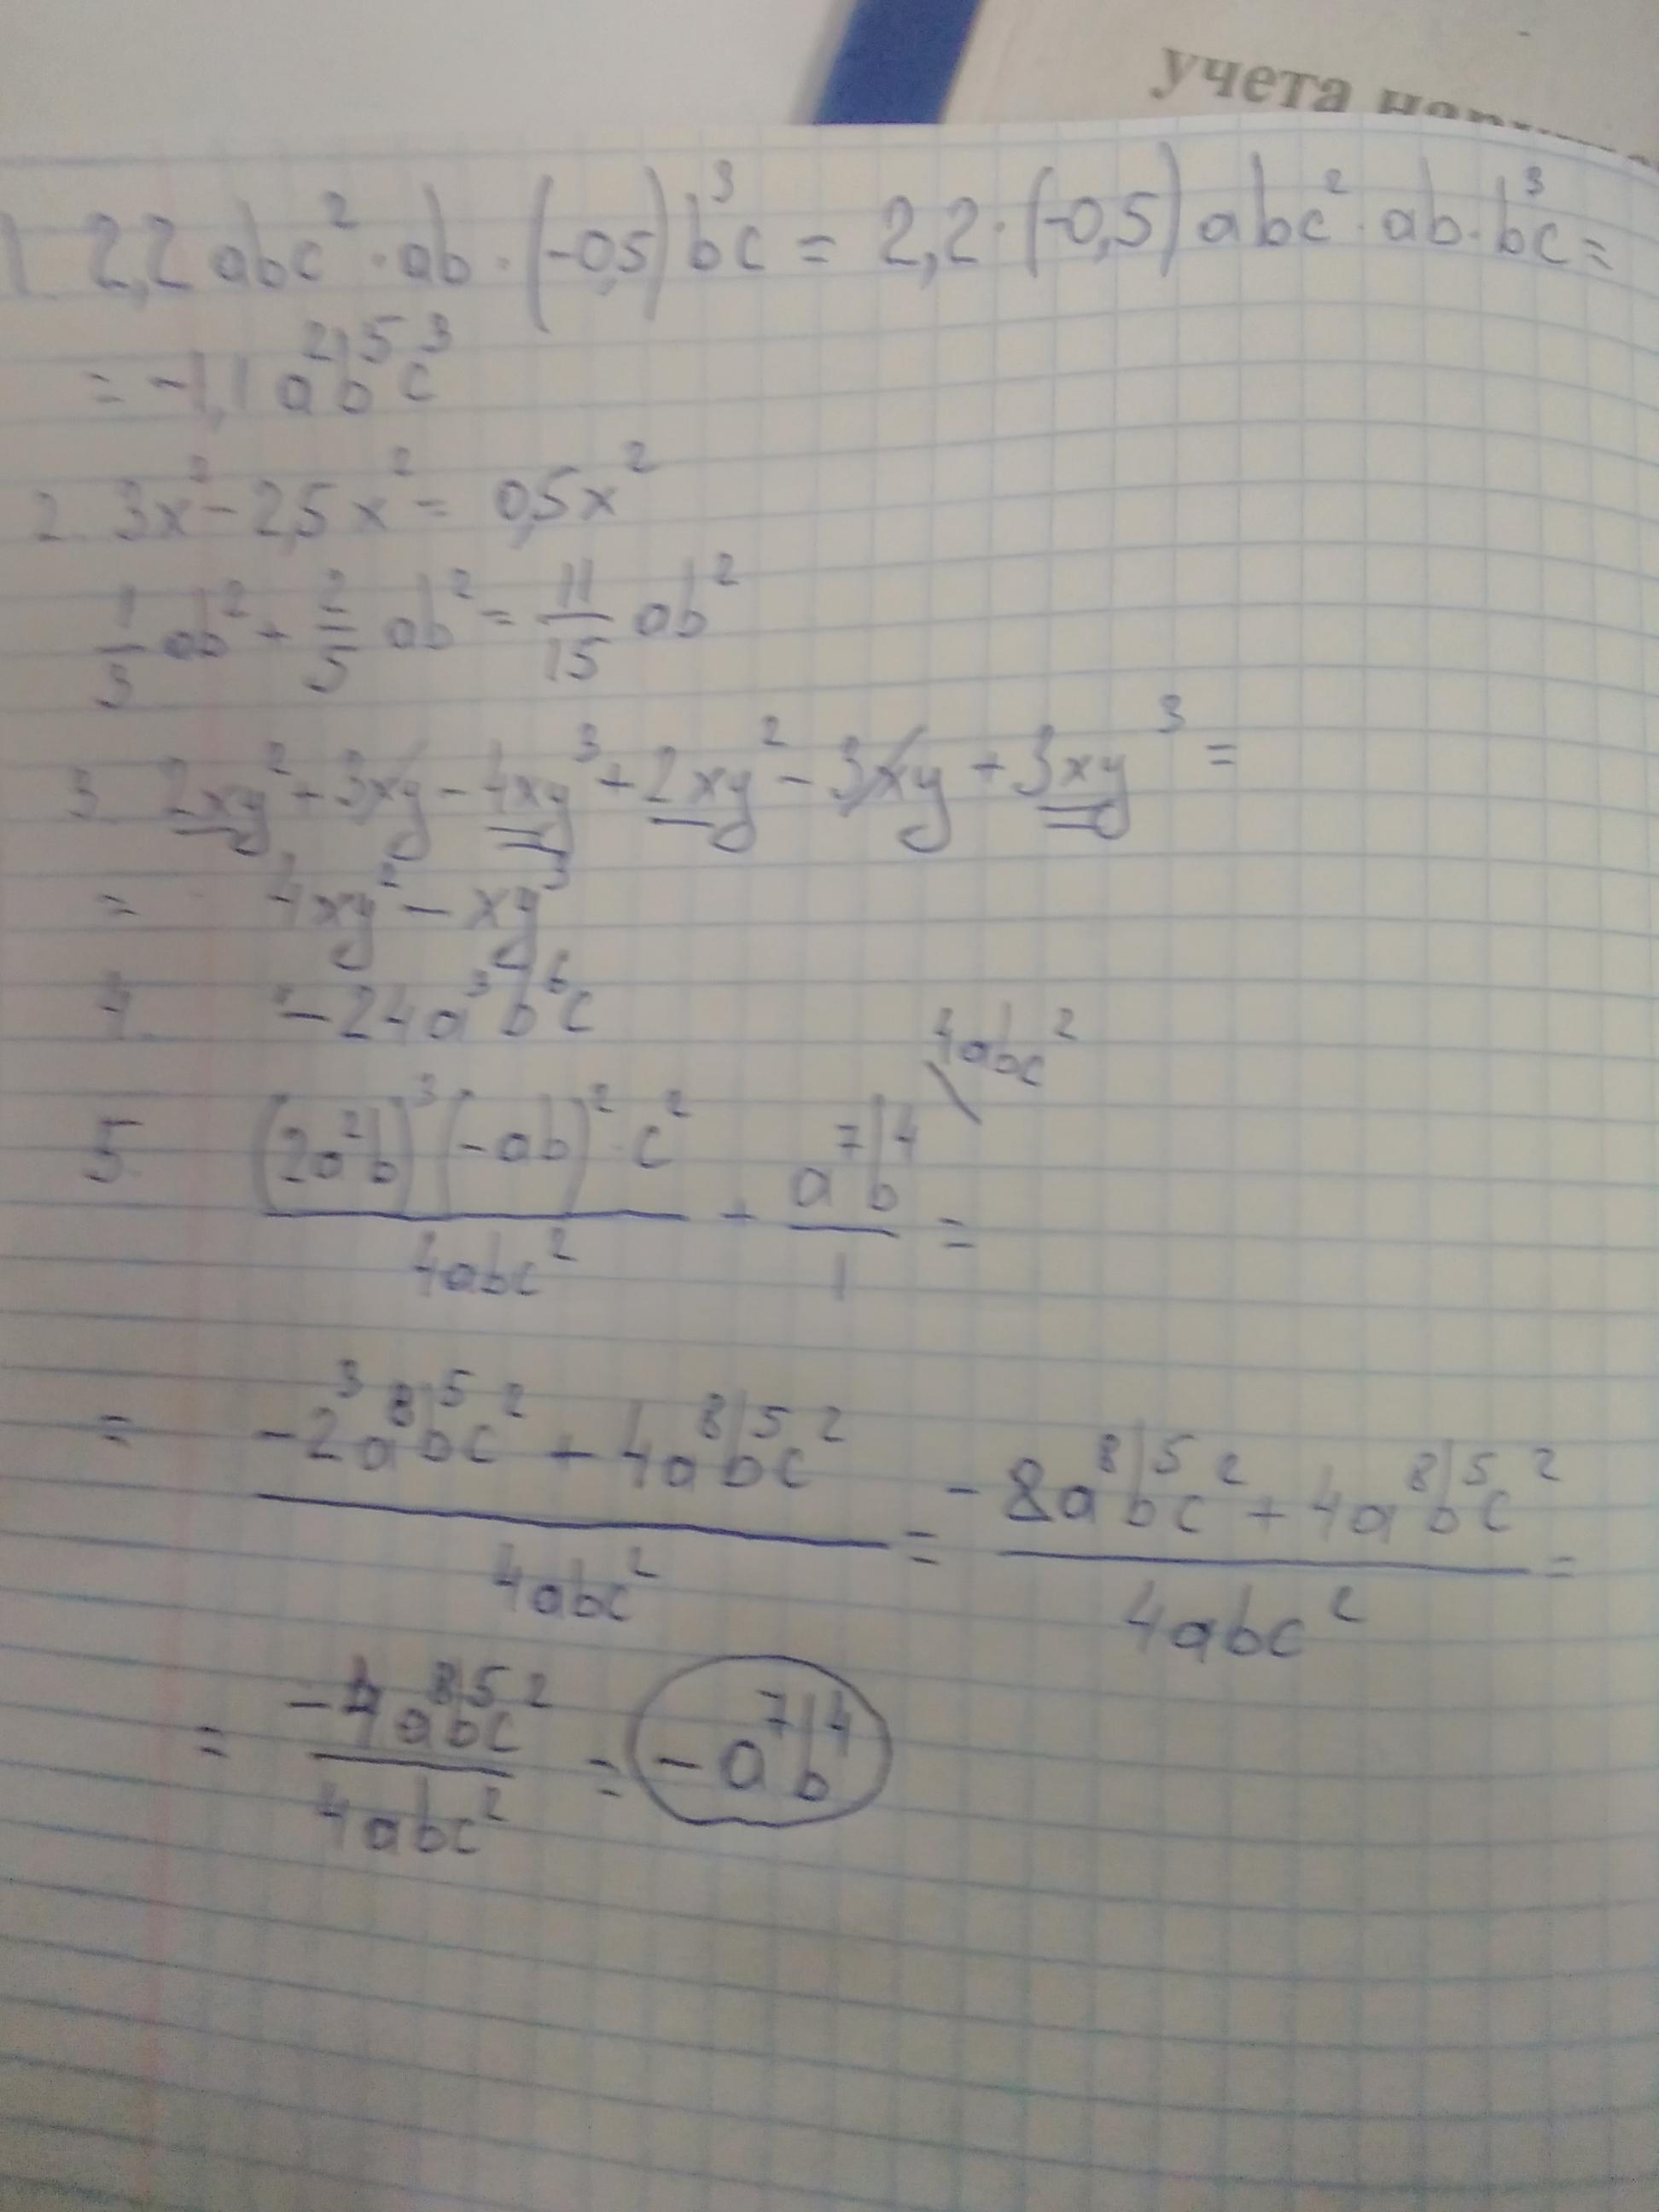 учета
1. 2,2abc² · ab · (-0,5)b³c = 2,2 · (-0,5)abc² · ab · b³c =
= -1,1a²b⁵c³
2. 3x² - 2,5x² = 0,5x²
1/3 ab² + 2/5 ab² = 11/15 ab²
3 2xy² + 3xy - 4xy³ + 2xy² - 3xy + 3xy³ =
= 4xy² - xy³
4. -24a³b⁶c
4abc²
5 (2a²b)³(-ab)² · c² / 4abc² + a⁷b⁴ / 1 =
= -2³a⁸b⁵c² + 4a⁸b⁵c² / 4abc² = -8a⁸b⁵c² + 4a⁸b⁵c² / 4abc² =
= -4a⁸b⁵c² / 4abc² = -a⁷b⁴